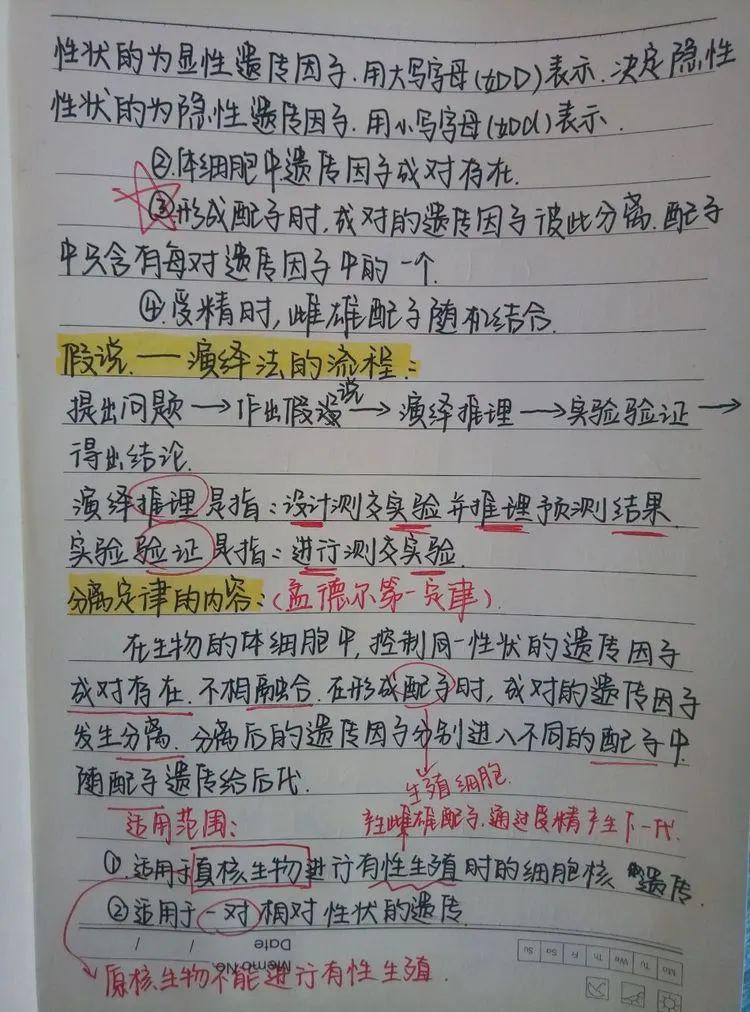 性状的为显性遗传因子.用大写字母(如D)表示.决定隐性
性状的为隐性遗传因子.用小写字母(如d)表示.
②.体细胞中遗传因子成对存在.
③形成配子时,成对的遗传因子彼此分离.配子
中只含有每对遗传因子中的一个.
④.受精时,雌雄配子随机结合.
假说.一演绎法的流程:
提出问题→作出假说→演绎推理→实验验证→
得出结论.
演绎推理是指:设计测交实验并推理预测结果.
实验验证是指:进行测交实验.
分离定律的内容:(孟德尔第一定律)
在生物的体细胞中,控制同一性状的遗传因子
成对存在.不相融合.在形成配子时,成对的遗传因子
发生分离.分离后的遗传因子分别进入不同的配子中.
随配子遗传给后代.
生殖细胞.
适用范围:
产生雌雄配子.通过受精产生下一代.
①.适用于真核生物进行有性生殖时的细胞核遗传
②适用于一对相对性状的遗传
原核生物不能进行有性生殖.
Memo No.
Date / /
Mo Tu We Th Fr Sa Su